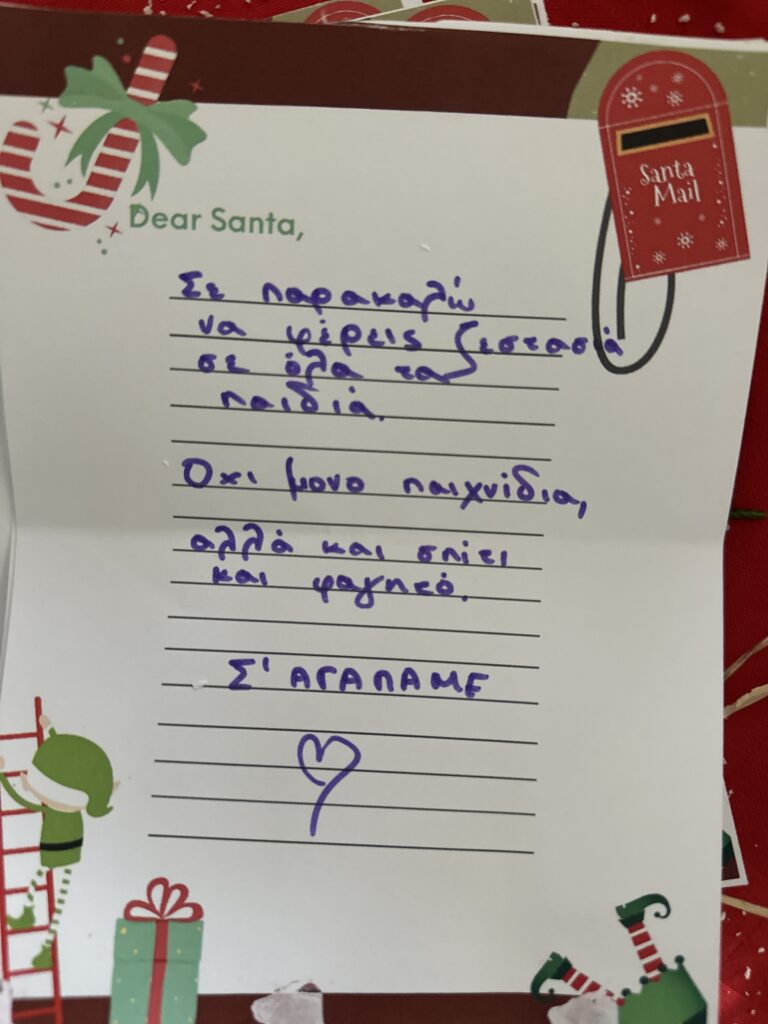 Santa
Mail
Dear Santa,
Σε παρακαλώ
να φέρεις ζεστασιά
σε όλα τα
παιδιά.
Οχι μονο παιχνίδια,
αλλά και σπίτι
και φαγητό.
Σ' ΑΓΑΠΑΜΕ